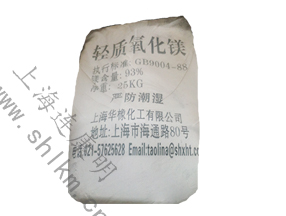 轻质氧化镁
执行标准: GB9004-88
镁含量: 93%
净重: 25KG
严防潮湿
上海华橡化工有限公司
地址:上海市海通路80号
电话:021-57625628 Email:taolina@shxht.co
上海连
明
www.shlkm.cn